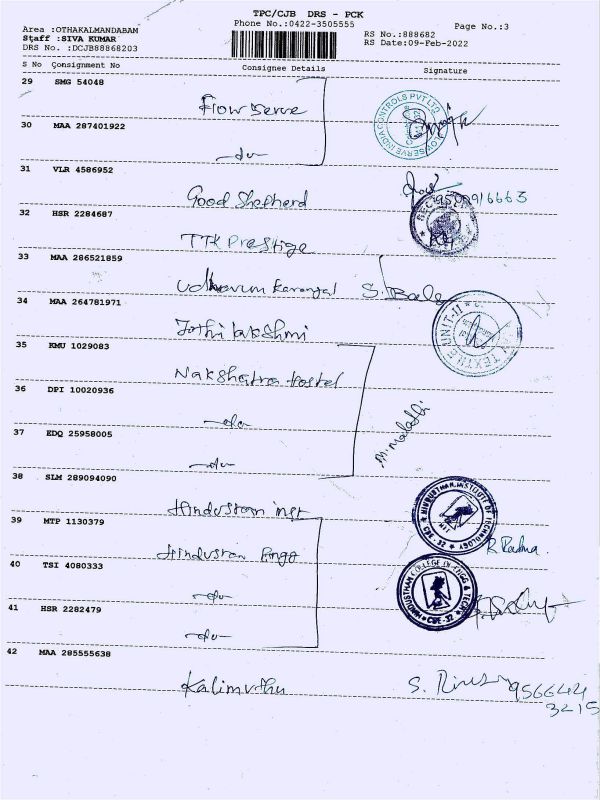 TPC/CJB DRS - PCK
Phone No.:0422-3505555
Page No.:3
Area :OTHAKALMANDABAM
Staff :SIVA KUMAR
DRS No. :DCJB88868203
RS No.:888682
RS Date:09-Feb-2022
S No Consignment No Consignee Details Signature
29 SMG 54048
Flow serve
30 MAA 287401922
-do-
31 VLR 4586952
Good Shepherd
32 HSR 2284687
TTK Prestige
33 MAA 286521859
Udhavum Karangal
34 MAA 264781971
Jothi lakshmi
35 KMU 1029083
Nakshatra hostel
36 DPI 10020936
-do-
37 EDQ 25958005
-do-
M. Malathi
38 SLM 289094090
Hindustan inst
HINDUSTHAN INSTITUTE OF TECHNOLOGY
R. Padma
39 MTP 1130379
Hindustan Engg
40 TSI 4080333
-do-
HINDUSTHAN COLLEGE OF ENGG & TECH
CBE-32
41 HSR 2282479
-do-
42 MAA 285555638
Kalimuthu